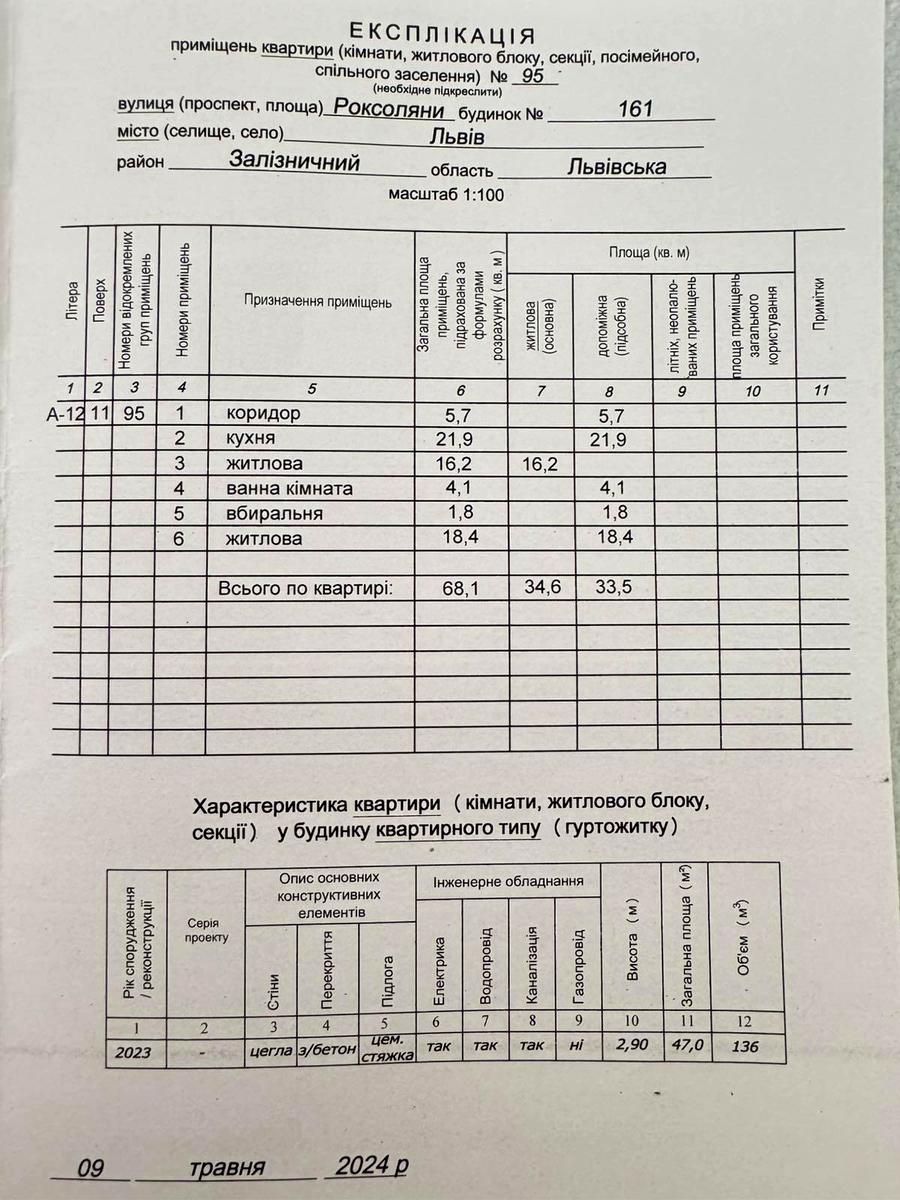 ЕКСПЛІКАЦІЯ
приміщень квартири (кімнати, житлового блоку, секції, посімейного,
спільного заселення) № 95
(необхідне підкреслити)
вулиця (проспект, площа) Роксоляни будинок № 161
місто (селище, село) Львів
район Залізничний область Львівська
масштаб 1:100
Літера | Поверх | Номери відокремлених груп приміщень | Номери приміщень | Призначення приміщень | Загальна площа приміщень, підрахована за формулами розрахунку ( кв. м ) | Площа (кв. м) | житлова (основна) | допоміжна (підсобна) | літніх, неопалю-ваних приміщень | площа приміщень загального користування | Примітки
1 | 2 | 3 | 4 | 5 | 6 | 7 | 8 | 9 | 10 | 11
А-12 | 11 | 95 | 1 | коридор | 5,7 | | 5,7
2 | кухня | 21,9 | | 21,9
3 | житлова | 16,2 | 16,2
4 | ванна кімната | 4,1 | | 4,1
5 | вбиральня | 1,8 | | 1,8
6 | житлова | 18,4 | | 18,4
Всього по квартирі: | 68,1 | 34,6 | 33,5
Характеристика квартири ( кімнати, житлового блоку,
секції ) у будинку квартирного типу ( гуртожитку )
Рік спорудження / реконструкції | Серія проекту | Опис основних конструктивних елементів | Стіни | Перекриття | Підлога | Інженерне обладнання | Електрика | Водопровід | Каналізація | Газопровід | Висота ( м ) | Загальна площа ( м²) | Об'єм ( м³)
1 | 2 | 3 | 4 | 5 | 6 | 7 | 8 | 9 | 10 | 11 | 12
2023 | - | цегла | з/бетон | цем. стяжка | так | так | так | ні | 2,90 | 47,0 | 136
09 травня 2024 р